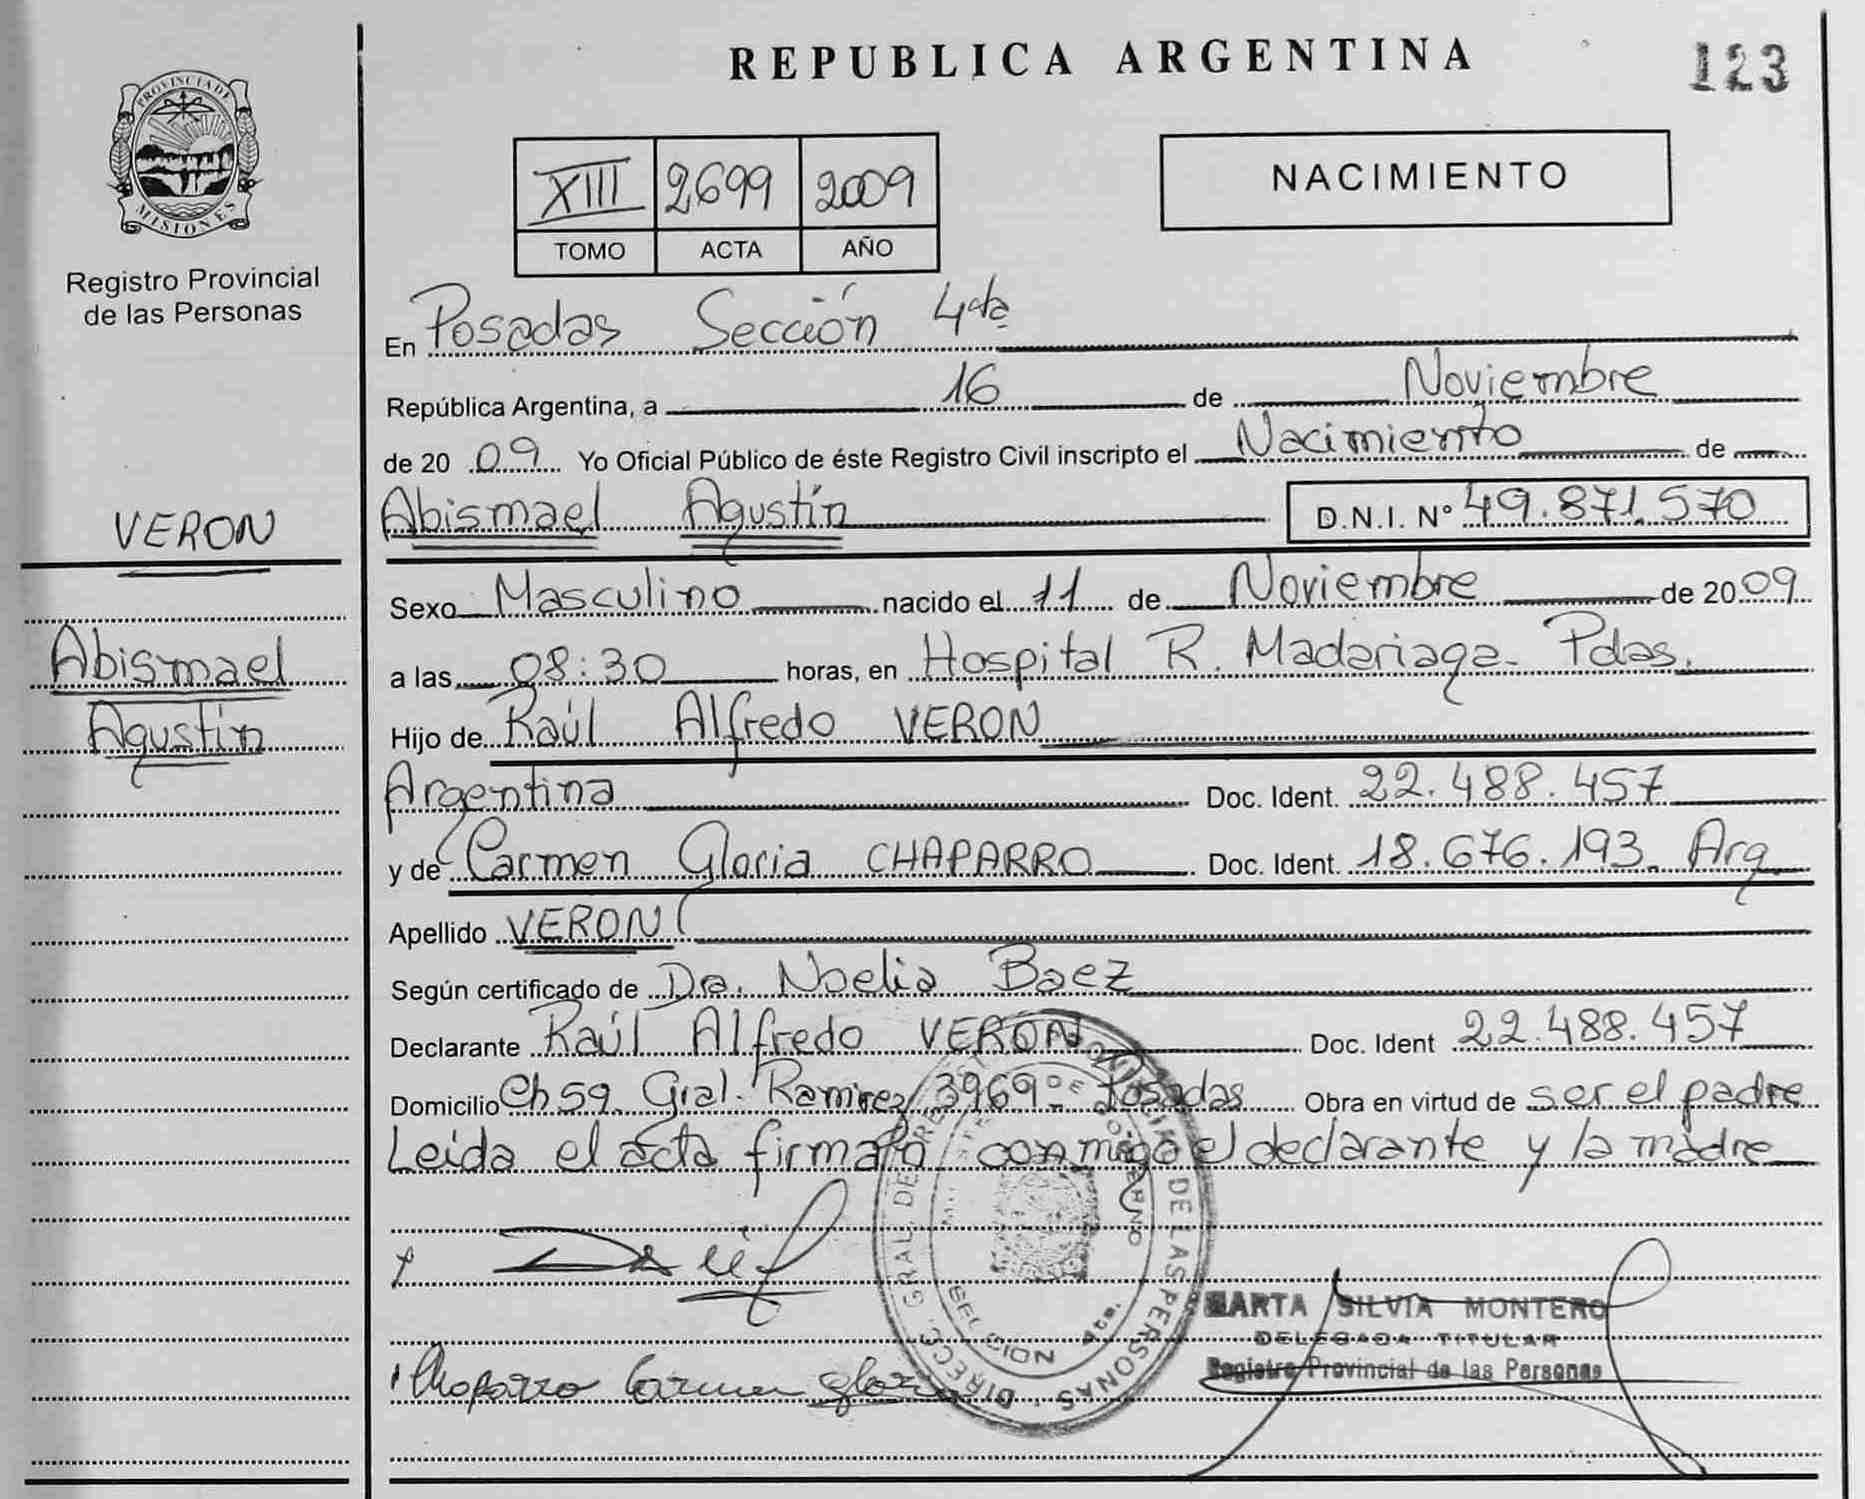 REPUBLICA ARGENTINA
123
PROVINCIA DE
MISIONES
Registro Provincial
de las Personas
XIII 2699 2009
TOMO ACTA AÑO
NACIMIENTO
En Posadas Sección 4ta
República Argentina, a 16 de Noviembre
de 20 09 Yo Oficial Público de éste Registro Civil inscripto el Nacimiento de
Abismael Agustín D.N.I. Nº 49.871.570
VERON
Abismael
Agustín
Sexo Masculino nacido el 11 de Noviembre de 20 09
a las 08:30 horas, en Hospital R. Madariaga- Pdas.
Hijo de Raúl Alfredo VERON
Argentina Doc. Ident. 22.488.457
y de Carmen Gloria CHAPARRO Doc. Ident. 18.676.193. Arg
Apellido VERON
Según certificado de Dra. Noelia Baez
Declarante Raúl Alfredo VERON Doc. Ident 22.488.457
Domicilio Ch 59. Gral. Ramirez 3969- Posadas Obra en virtud de ser el padre
Leída el acta firman conmigo el declarante y la madre
DE LAS PERSONAS
MARTA SILVIA MONTERO
DELEGADA TITULAR
Registro Provincial de las Personas
Chaparro Carmen Gloria